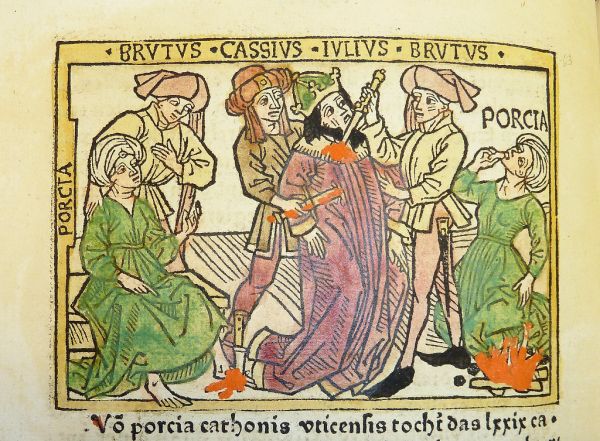 · BRVTVS · CASSIVS · IVLIVS · BRVTVS ·
PORCIA
PORCIA
Võ porcia cathonis vticensis tocht̃ das lxxix ca-